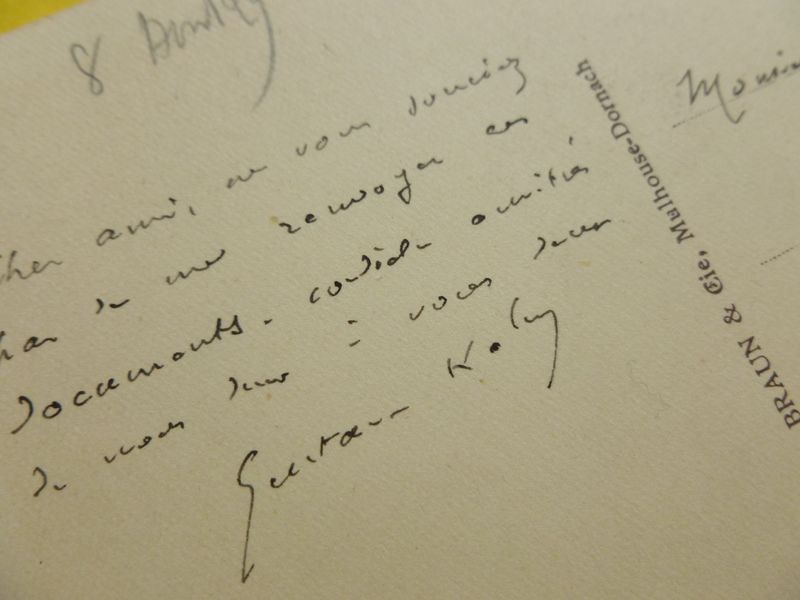 8
cher ami, ne vous souciez
pas de me renvoyer ces
documents. cordiale amitié
de nous deux à vous deux
Gustave Kahn
BRAUN & Cie, Mulhouse-Dornach